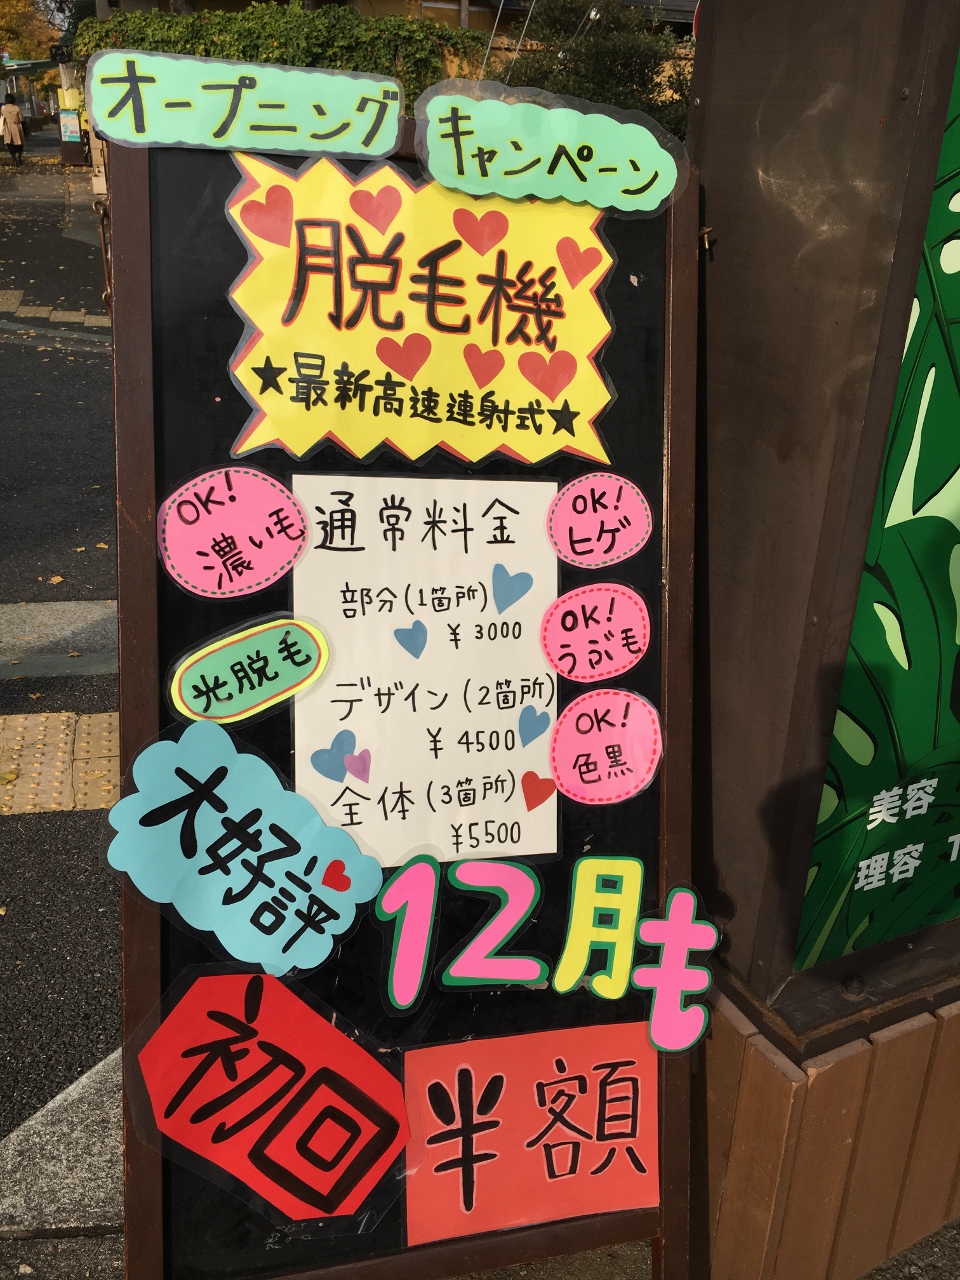 オープニング
キャンペーン
脱毛機
★最新高速連射式★
OK!
濃い毛
光脱毛
通常料金
部分(1箇所)
¥3000
デザイン(2箇所)
¥4500
全体(3箇所)
¥5500
OK!
ヒゲ
OK!
うぶ毛
OK!
色黒
大好評
12月も
初回
半額
美容
理容 T